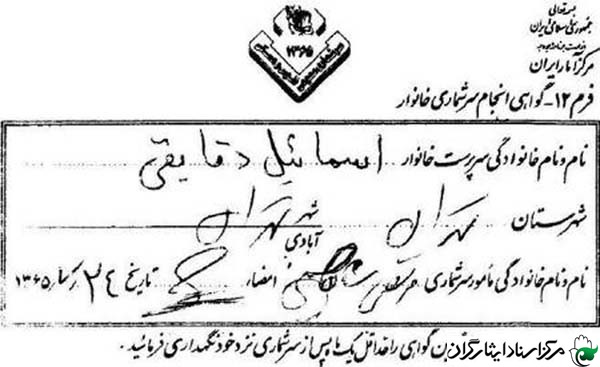 بسمه تعالی
جمهوری اسلامی ایران
مرکز آمار ایران
۱۳۶۵
فرم ۱۲- گواهی انجام سرشماری خانوار
نام و نام خانوادگی سرپرست خانوار اسمائیل دقایقی
شهرستان تهران شهر تهران
آبادی
نام و نام خانوادگی مأمور سرشماری امضاء تاریخ ۲۴ / ۱۳۶۵
گواهی را حداقل یک ماه پس از سرشماری نزد خود نگهداری فرمائید.
مرکز اسناد ایثارگران